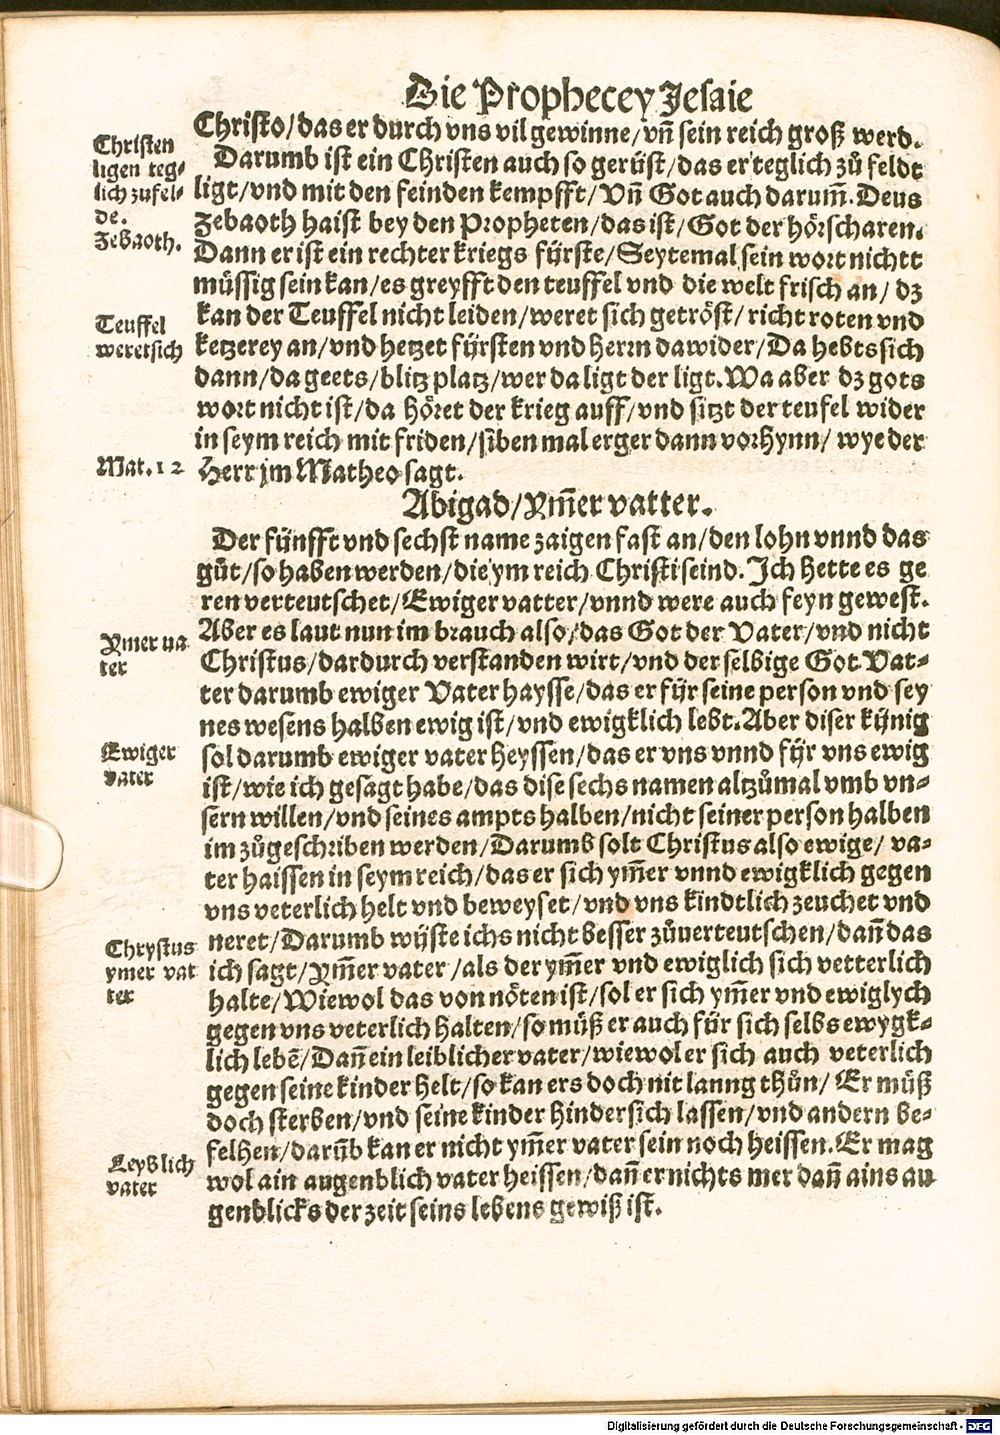 Die Prophecey Jesaie
Christo/das er durch vns vil gewinne/vñ sein reich groß werd.
Christen
ligen teg-
lich zu fel-
de.
Zebaoth.
Darumb ist ein Christen auch so gerüst/das er teglich zů feldt
ligt/vnd mit den feinden kempfft/Vñ Got auch darum̃. Deus
Zebaoth haist bey den Propheten/das ist/Got der hörscharen.
Dann er ist ein rechter kriegs fürste/Seytemal sein wort nichtt
müssig sein kan/es greyfft den teuffel vnd die welt frisch an/ dz
Teuffel
weret sich
kan der Teuffel nicht leiden/weret sich getröst/richt roten vnd
ketzerey an/vnd hetzet fürsten vnd herrn dawider/Da hebts sich
dann/da geets/blitz platz/wer da ligt der ligt. Wa aber dz gots
wort nicht ist/da höret der krieg auff/vnd sitzt der teufel wider
in seym reich mit friden/siben mal erger dann vorhynn/ wye der
Mat. 12
Herr jm Matheo sagt.
Abigad/Ym̃er vatter.
Der fünfft vnd sechst name zaigen fast an/den lohn vnnd das
gůt/so haben werden/die ym reich Christi seind. Ich hette es ge
ren verteutschet/Ewiger vatter/vnnd were auch feyn gewest.
Aber es laut nun im brauch also/das Got der Vater/vnd nicht
Ymer va
ter
Christus/dardurch verstanden wirt/vnd der selbige Got Vat-
ter darumb ewiger Vater haysse/das er für seine person vnd sey
nes wesens halben ewig ist/vnd ewigklich lebt. Aber diser künig
Ewiger
vater
sol darumb ewiger vater heyssen/das er vns vnnd für vns ewig
ist/wie ich gesagt habe/das dise sechs namen altzůmal vmb vn-
sern willen/vnd seines ampts halben/nicht seiner person halben
im zůgeschriben werden/Darumb solt Christus also ewige/ va-
ter haissen in seym reich/das er sich ym̃er vnnd ewigklich gegen
vns veterlich helt vnd beweyset/vnd vns kindtlich zeuchet vnd
Chrystus
ymer vat
ter
neret/Darumb wüste ichs nicht besser zůuerteutschen/dañ das
ich sagt/Ym̃er vater/als der ym̃er vnd ewiglich sich vetterlich
halte/Wiewol das von nöten ist/sol er sich ym̃er vnd ewiglych
gegen vns veterlich halten/so můß er auch für sich selbs ewygk-
lich lebẽ/Dañ ein leiblicher vater/wiewol er sich auch veterlich
gegen seine kinder helt/so kan ers doch nit lanng thůn/ Er můß
doch sterben/vnd seine kinder hinder sich lassen/vnd andern be-
felhen/darũb kan er nicht ym̃er vater sein noch heissen. Er mag
Leyblich
vater
wol ain augenblick vater heissen/dañ er nichts mer dañ ains au
genblicks der zeit seins lebens gewiß ist.
Digitalisierung gefördert durch die Deutsche Forschungsgemeinschaft - DFG